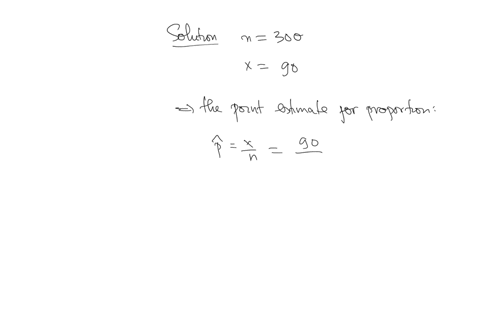 Solution n = 300
x = 90
⇒ the point estimate for proportion:
p̂ = x/n = 90/